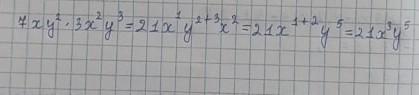 7xy²·3x²y³=21x¹y²⁺³x²=21x¹⁺²y⁵=21x³y⁵